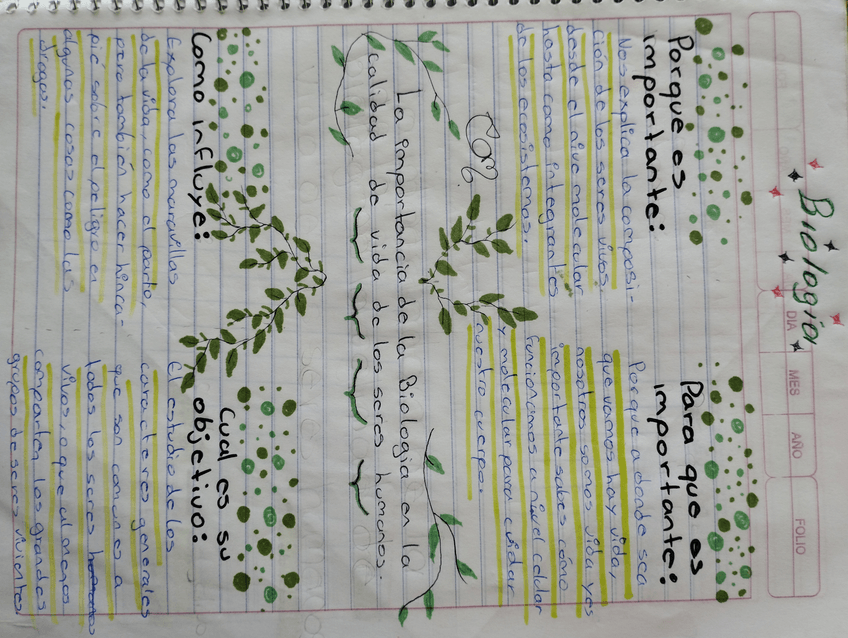 Biología
DIA MES AÑO FOLIO
Porque es
importante:
Nos explica la composi-
ción de los seres vivos,
desde el nive molecular
hasta como integrantes
de los ecosistemas.
Para que es
importante:
Porque a donde sea
que vamos hay vida,
nosotros somos vida, y es
importante sabes como
funcionamos a nivel celular
y molecular para cuidar
nuestro cuerpo.
La importancia de la Biologia en la
calidad de vida de los seres humanos.
Como influye:
Explora las maravillas
de la vida, como el parto,
pero también hacer hinca-
pié sobre el peligro en
algunas cosas como las
drogas.
Cual es su
objetivo:
El estudio de los
caracteres generales
que son comunes a
todos los seres
vivos, o que al menos
comparten los grandes
grupos de seres vivientes